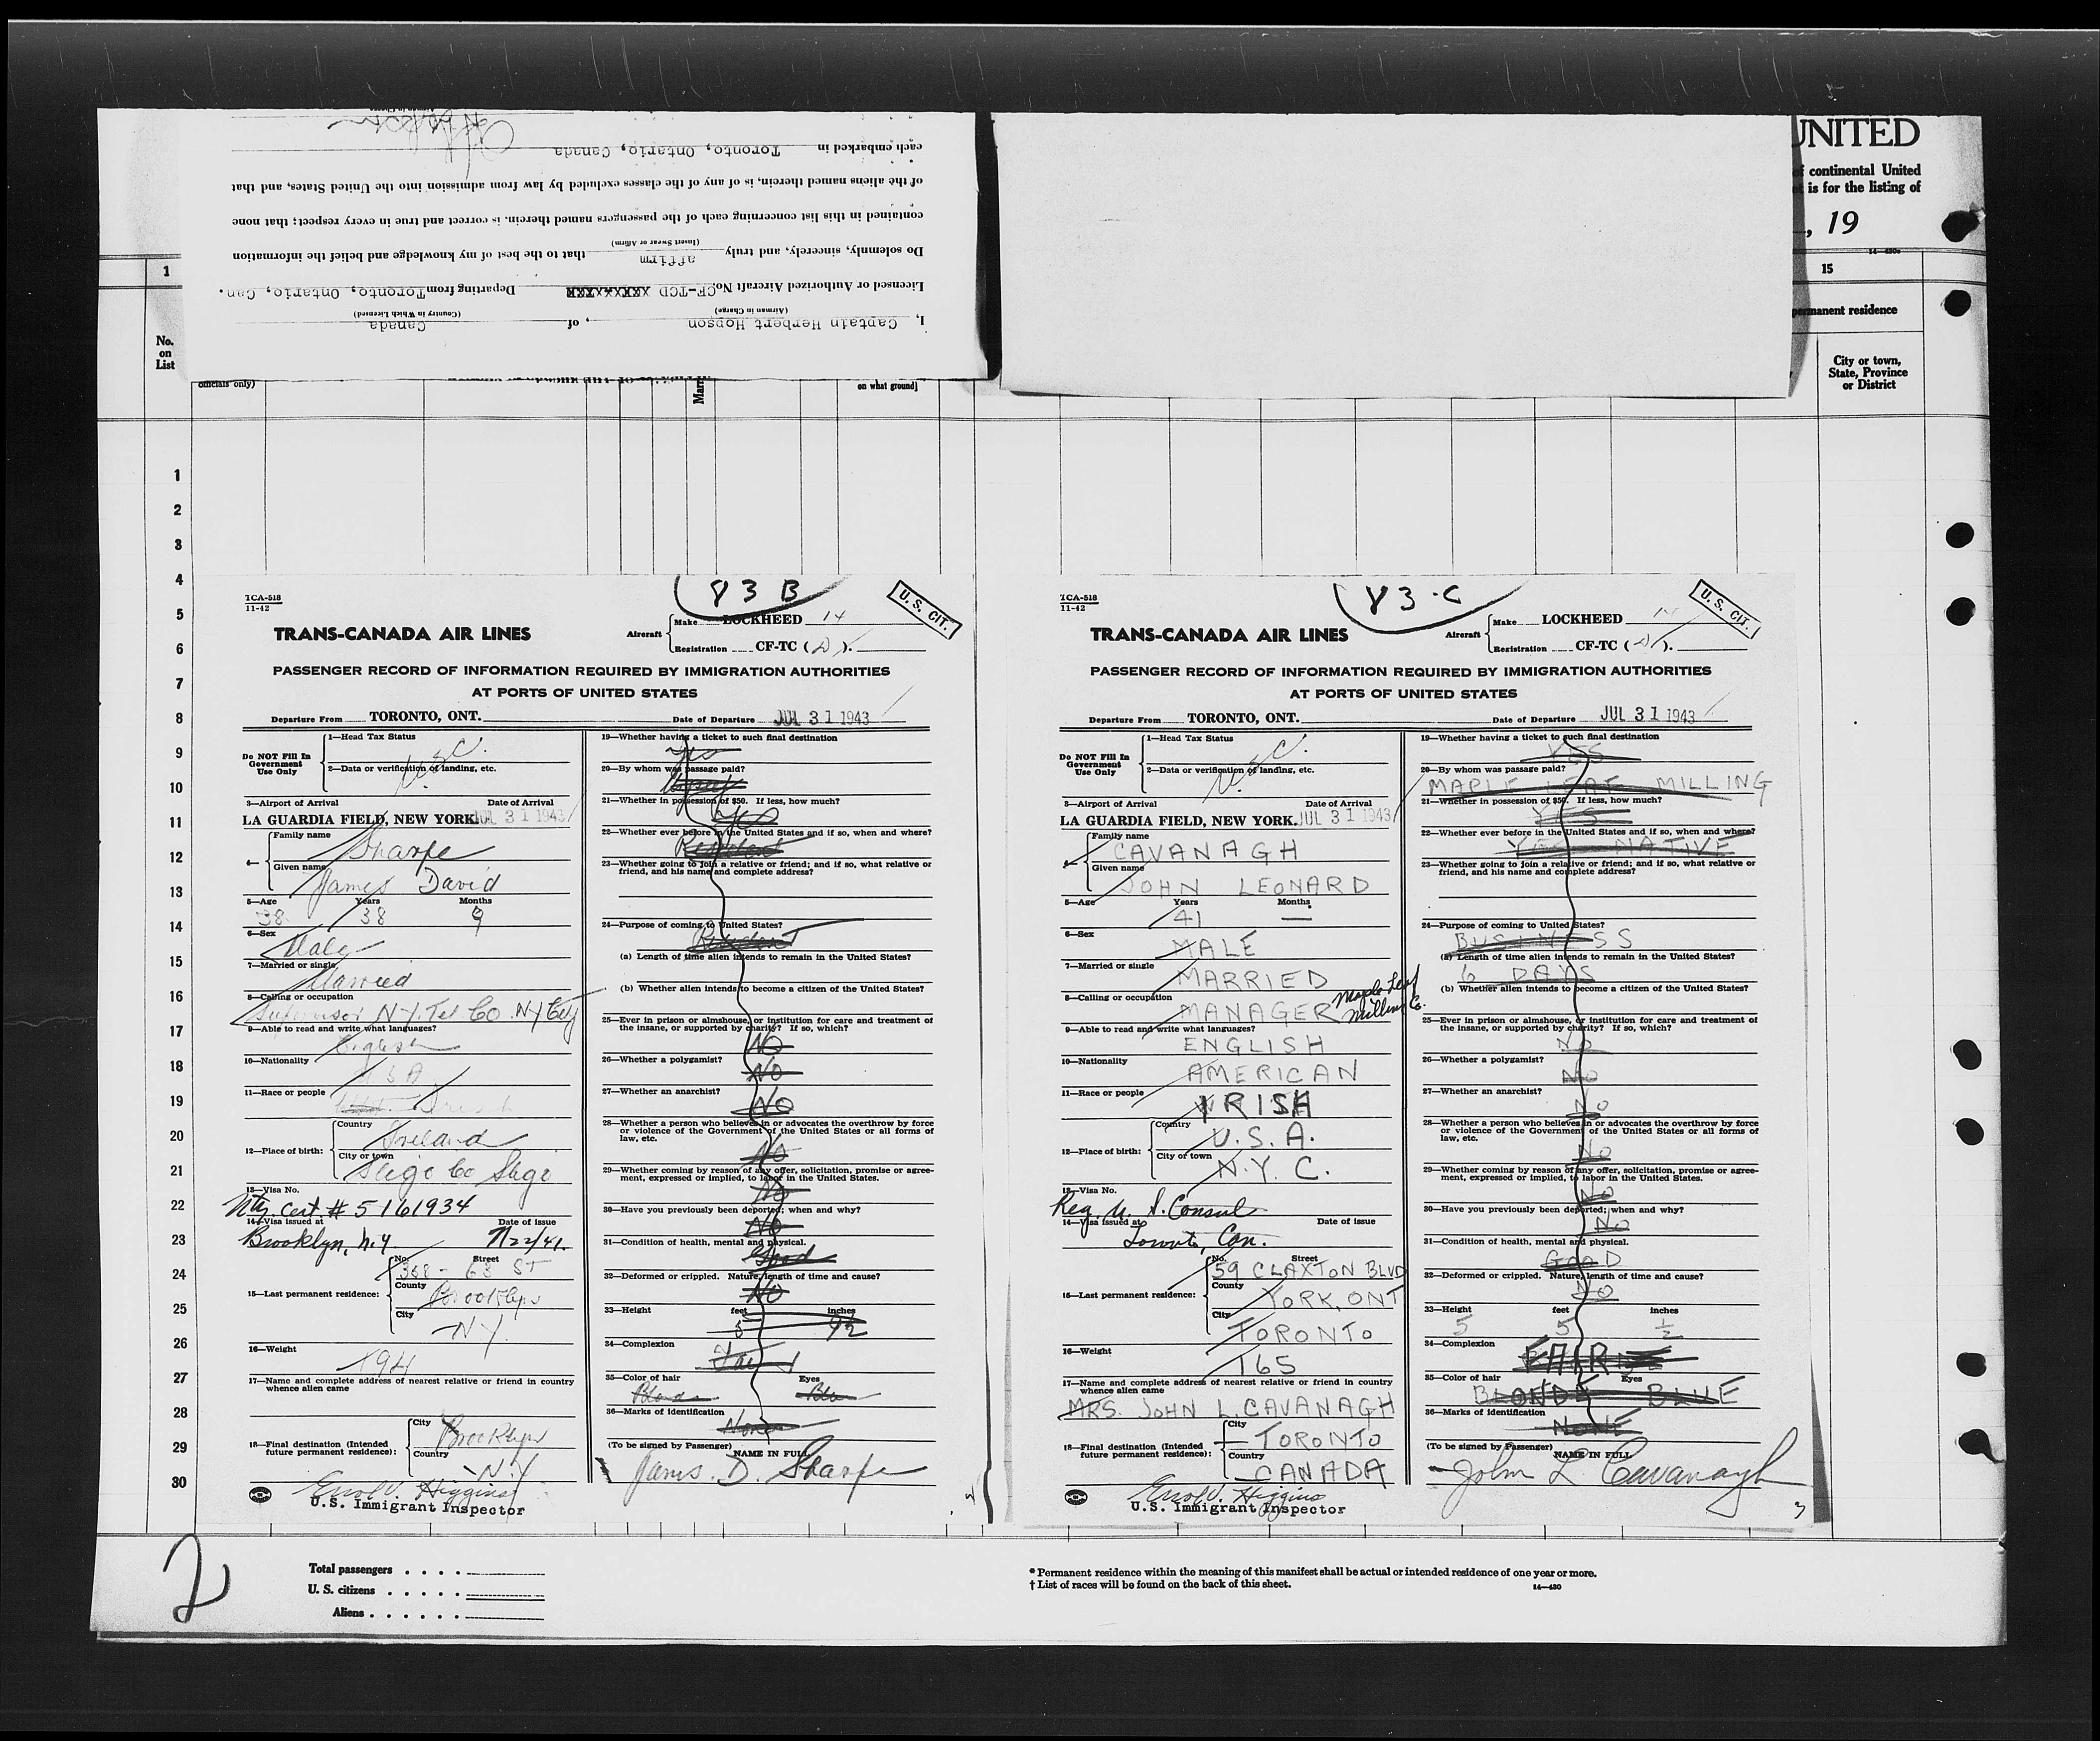 I, Captain Herbert Hopson, of Canada
(Airman in Charge) (Country in Which Licensed)
Licensed or Authorized Aircraft No. CF-TCD Departing from Toronto, Ontario, Can.
Do solemnly, sincerely, and truly affirm that to the best of my knowledge and belief the information
(Insert Swear or Affirm)
contained in this list concerning each of the passengers named therein, is correct and true in every respect; that none
of the aliens named therein, is of any of the classes excluded by law from admission into the United States, and that
each embarked in Toronto, Ontario, Canada
UNITED
of continental United
is for the listing of
, 19
1
15
permanent residence
No.
on
List
City or town,
State, Province
or District
officials only)
on what ground]
1
2
3
4
5
6
7
8
9
10
11
12
13
14
15
16
17
18
19
20
21
22
23
24
25
26
27
28
29
30
83 B
TCA-518
11-42
U. S. CIT.
TRANS-CANADA AIR LINES
Aircraft
Make LOCKHEED 14
Registration CF-TC (D).
PASSENGER RECORD OF INFORMATION REQUIRED BY IMMIGRATION AUTHORITIES
AT PORTS OF UNITED STATES
Departure From TORONTO, ONT. Date of Departure JUL 31 1943
Do NOT Fill In
Government
Use Only
1—Head Tax Status
2—Data or verification of landing, etc.
U.S.C.
3—Airport of Arrival Date of Arrival
LA GUARDIA FIELD, NEW YORK. JUL 31 1943
4— Family name Sharpe
Given name James David
5—Age Years Months
38 38 9
6—Sex Male
7—Married or single Married
8—Calling or occupation
Supervisor N.Y. Tel Co. N.Y City
9—Able to read and write what languages?
English
10—Nationality
USA
11—Race or people
Irish
12—Place of birth: Country Ireland
City or town Sligo Co Sligo
13—Visa No.
Ntz. Cert # 5161934
14—Visa issued at Date of issue
Brooklyn, N.Y. 7/22/41.
15—Last permanent residence: No. Street
368 - 63 ST
County Brooklyn
City N.Y.
16—Weight 194
17—Name and complete address of nearest relative or friend in country
whence alien came
18—Final destination (Intended
future permanent residence):
City Brooklyn
Country N.Y
Errol V. Higgins
U.S. Immigrant Inspector
19—Whether having a ticket to such final destination
Yes
20—By whom was passage paid?
Myself
21—Whether in possession of $50. If less, how much?
Yes
22—Whether ever before in the United States and if so, when and where?
Resident
23—Whether going to join a relative or friend; and if so, what relative or
friend, and his name and complete address?
24—Purpose of coming to United States?
Resident
(a) Length of time alien intends to remain in the United States?
(b) Whether alien intends to become a citizen of the United States?
25—Ever in prison or almshouse, or institution for care and treatment of
the insane, or supported by charity? If so, which?
NO
26—Whether a polygamist?
NO
27—Whether an anarchist?
NO
28—Whether a person who believes in or advocates the overthrow by force
or violence of the Government of the United States or all forms of
law, etc.
No
29—Whether coming by reason of any offer, solicitation, promise or agree-
ment, expressed or implied, to labor in the United States.
No
30—Have you previously been deported; when and why?
NO
31—Condition of health, mental and physical.
Good
32—Deformed or crippled. Nature, length of time and cause?
NO
33—Height feet inches
5 9½
34—Complexion
Fair
35—Color of hair Eyes
Blonde Blue
36—Marks of identification
None
(To be signed by Passenger) NAME IN FULL
James. D. Sharpe
2
83-C
TCA-518
11-42
U. S. CIT.
TRANS-CANADA AIR LINES
Aircraft
Make LOCKHEED 14
Registration CF-TC (D).
PASSENGER RECORD OF INFORMATION REQUIRED BY IMMIGRATION AUTHORITIES
AT PORTS OF UNITED STATES
Departure From TORONTO, ONT. Date of Departure JUL 31 1943
Do NOT Fill In
Government
Use Only
1—Head Tax Status
2—Data or verification of landing, etc.
U.S.C.
3—Airport of Arrival Date of Arrival
LA GUARDIA FIELD, NEW YORK. JUL 31 1943
4— Family name
CAVANAGH
Given name
JOHN LEONARD
5—Age Years Months
41 —
6—Sex
MALE
7—Married or single
MARRIED
8—Calling or occupation
MANAGER Maple Leaf Milling Co.
9—Able to read and write what languages?
ENGLISH
10—Nationality
AMERICAN
11—Race or people
IRISH
12—Place of birth: Country
U.S.A.
City or town
N.Y.C.
13—Visa No.
Reg. U. S. Consul
14—Visa issued at Date of issue
Toronto, Can.
15—Last permanent residence: No. Street
59 CLAXTON BLVD
County
YORK, ONT
City
TORONTO
16—Weight
165
17—Name and complete address of nearest relative or friend in country
whence alien came
MRS. JOHN L. CAVANAGH
18—Final destination (Intended
future permanent residence):
City
TORONTO
Country
CANADA
Errol V. Higgins
U.S. Immigrant Inspector
19—Whether having a ticket to such final destination
YES
20—By whom was passage paid?
MAPLE LEAF MILLING
21—Whether in possession of $50. If less, how much?
YES
22—Whether ever before in the United States and if so, when and where?
YES NATIVE
23—Whether going to join a relative or friend; and if so, what relative or
friend, and his name and complete address?
24—Purpose of coming to United States?
BUSINESS
(a) Length of time alien intends to remain in the United States?
6 DAYS
(b) Whether alien intends to become a citizen of the United States?
25—Ever in prison or almshouse, or institution for care and treatment of
the insane, or supported by charity? If so, which?
NO
26—Whether a polygamist?
NO
27—Whether an anarchist?
NO
28—Whether a person who believes in or advocates the overthrow by force
or violence of the Government of the United States or all forms of
law, etc.
No
29—Whether coming by reason of any offer, solicitation, promise or agree-
ment, expressed or implied, to labor in the United States.
No
30—Have you previously been deported; when and why?
No
31—Condition of health, mental and physical.
GOOD
32—Deformed or crippled. Nature, length of time and cause?
NO
33—Height feet inches
5 5 ½
34—Complexion
FAIR
35—Color of hair Eyes
BLONDE BLUE
36—Marks of identification
NONE
(To be signed by Passenger) NAME IN FULL
John L. Cavanagh
3
2
Total passengers
U. S. citizens
Aliens
* Permanent residence within the meaning of this manifest shall be actual or intended residence of one year or more.
† List of races will be found on the back of this sheet.
14—430